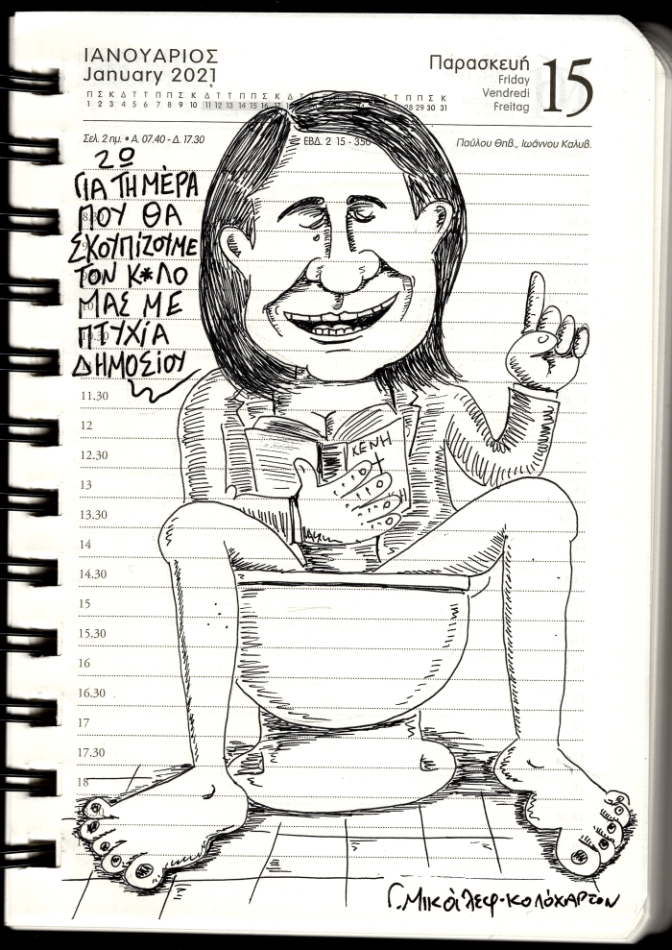 ΙΑΝΟΥΑΡΙΟΣ
January 2021
Π Σ Κ Δ Τ Τ Π Π Σ Κ Δ Τ Τ Π Π Σ Κ Δ Π Σ Κ
1 2 3 4 5 6 7 8 9 10 11 12 13 14 15 16 28 29 30 31
Παρασκευή
Friday
Vendredi
Freitag
15
Σελ. 2 ημ. • Α. 07.40 - Δ. 17.30
ΕΒΔ. 2 15 - 350
Παύλου Θηβ., Ιωάννου Καλυβ.
ΓΙΑ ΤΗ ΜΕΡΑ
ΠΟΥ ΘΑ
ΣΚΟΥΠΙΖΟΥΜΕ
ΤΟΝ Κ*ΛΟ
ΜΑΣ ΜΕ
ΠΤΥΧΙΑ
ΔΗΜΟΣΙΟΥ
ΚΕΝΗ
11.30
12
12.30
13
13.30
14
14.30
15
15.30
16
16.30
17
17.30
18